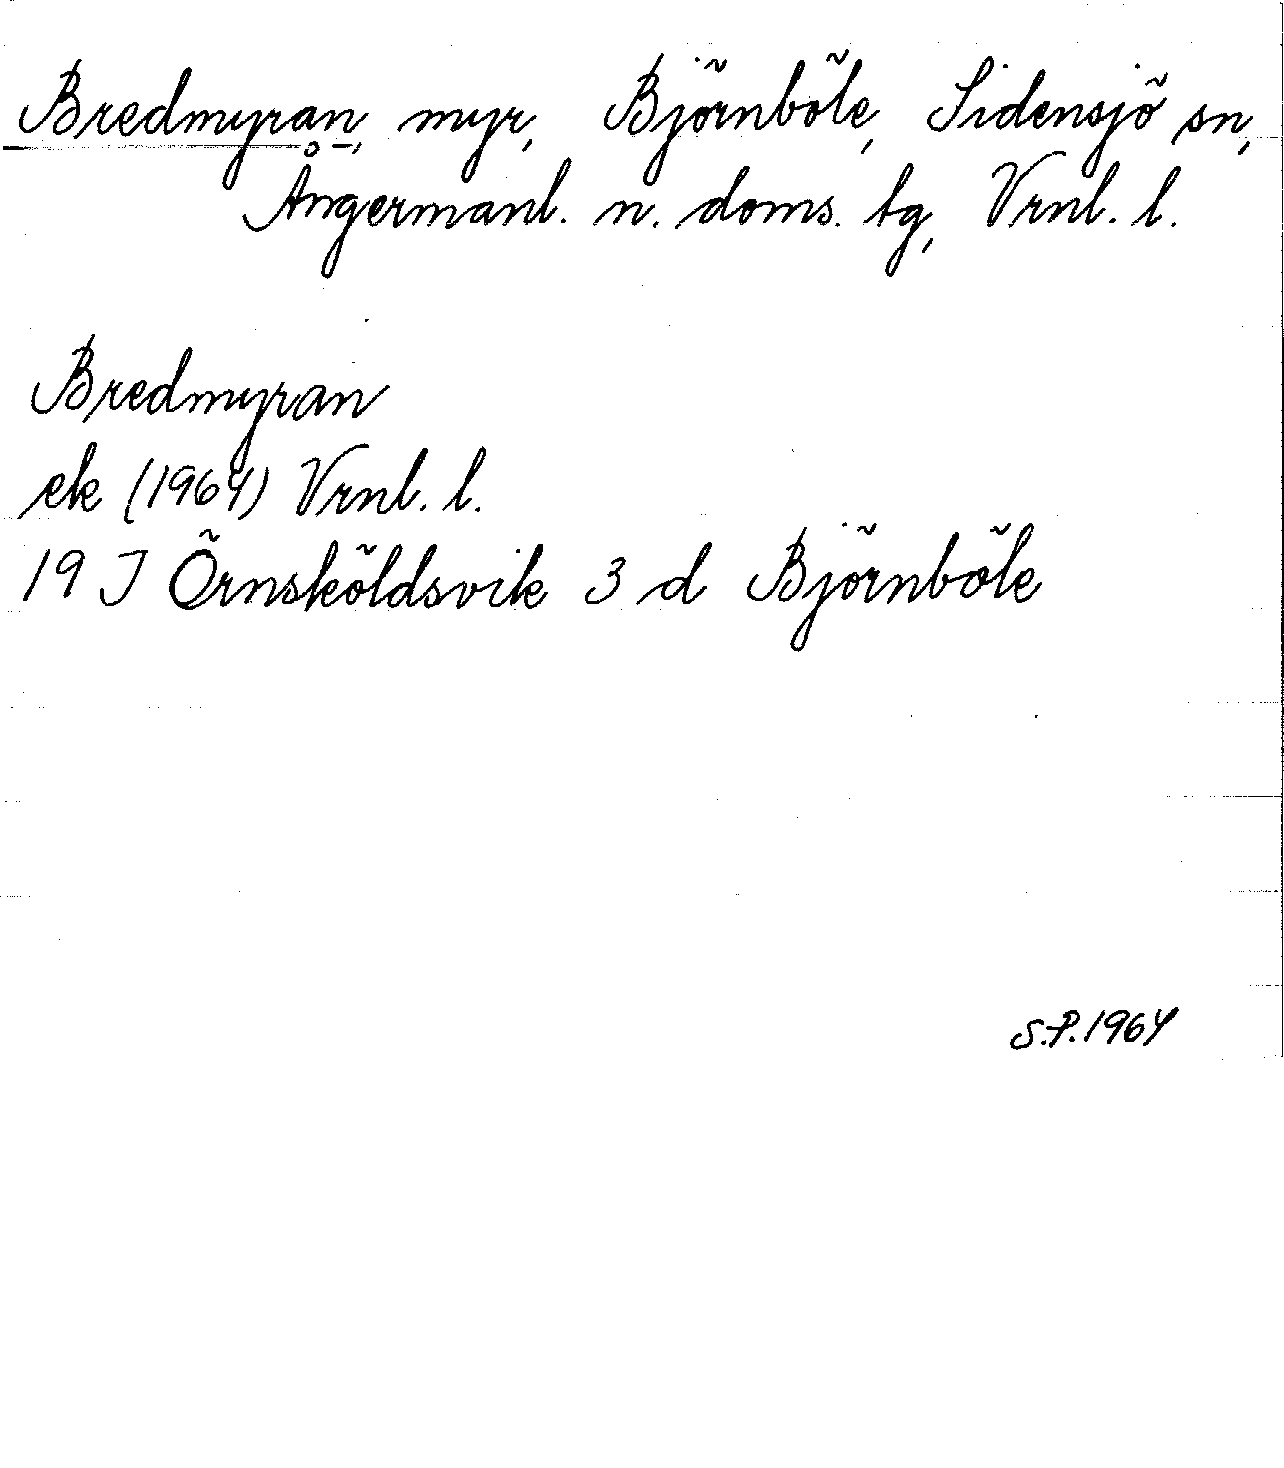 Bredmyran, myr, Björnböle, Sidensjö sn,
Ångermanl. n. doms. tg, Vrnl. l.
Bredmyran
ek (1964) Vrnl. l.
19 J Örnsköldsvik 3 d Björnböle
S.P. 1964